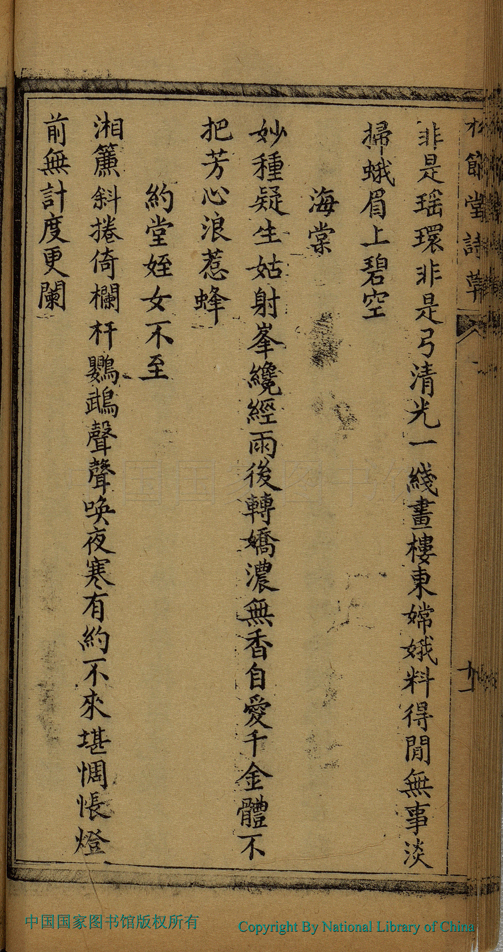 非是瑶環非是弓清光一綫畫樓東嫦娥料得閒無事淡
掃蛾眉上碧空
海棠
妙種疑生姑射峯纔經雨後轉嬌濃無香自愛千金體不
把芳心浪惹蜂
約堂姪女不至
湘簾斜捲倚欄杆鸚鵡聲聲喚夜寒有約不來堪惆悵燈
前無計度更闌
節堂詩草
十一
中国国家图书馆版权所有
Copyright By National Library of China